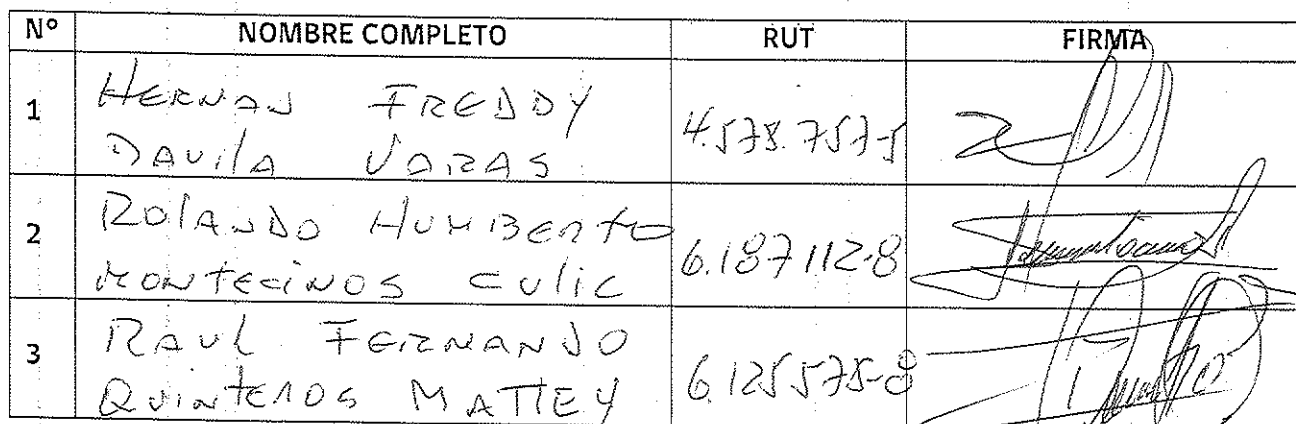 Nº NOMBRE COMPLETO RUT FIRMA
1 HERNAN FREDDY
DAVILA VARAS 4.578.757-5
2 ROLANDO HUMBERTO
MONTECINOS CULIC 6.187112-8
3 RAUL FERNANDO
QUINTEROS MATTEY 6.125575-8